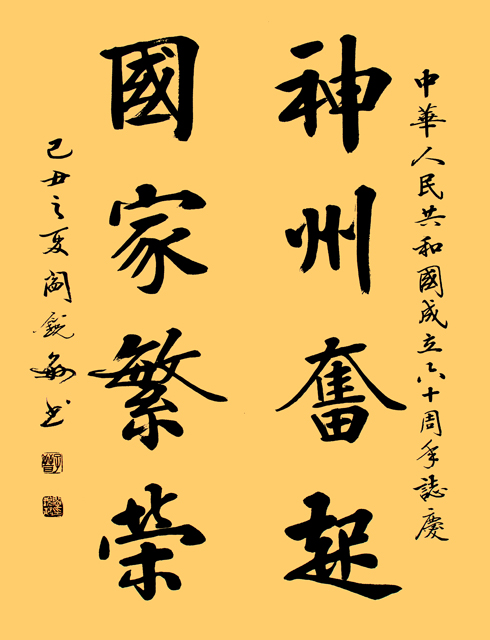 中華人民共和國成立六十周年誌慶
神州奮起
國家繁荣
己丑之夏阎锐敏书